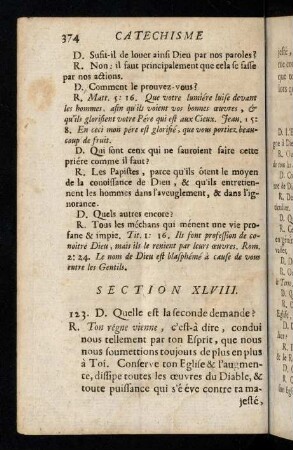 374 CATECHISME
D. Sufit-il de louer ainsi Dieu par nos paroles?
R. Non: il faut principalement que cela se fasse
par nos actions.
D. Comment le prouvez-vous?
R. Matt. 5: 16. Que votre lumière luise devant
les hommes, afin qu'ils voient vos bonnes œuvres, &
qu'ils glorifient votre Pére qui est aux Cieux. Jean, 15:
8. En ceci mon pére est glorifié, que vous portiez beau-
coup de fruit.
D. Qui sont ceux qui ne sauroient faire cette
priére comme il faut?
R. Les Papistes, parce qu'ils ôtent le moyen
de la conoissance de Dieu, & qu'ils entretien-
nent les hommes dans l'aveuglement, & dans l'ig-
norance.
D. Quels autres encore?
R. Tous les méchans qui ménent une vie pro-
fane & impie. Tit. 1: 16. Ils font profession de co-
noitre Dieu, mais ils le renient par leurs œuvres. Rom.
2: 24. Le nom de Dieu est blasphémé à cause de vous
entre les Gentils.
SECTION XLVIII.
123. D. Quelle est la seconde demande?
R. Ton régne vienne, c'est-à dire, condui
nous tellement par ton Esprit, que nous
nous soumettions toujours de plus en plus
à Toi. Conserve ton Eglise & l'augmen-
te, dissipe toutes les œuvres du Diable, &
toute puissance qui s'éve contre ta ma-
jesté,